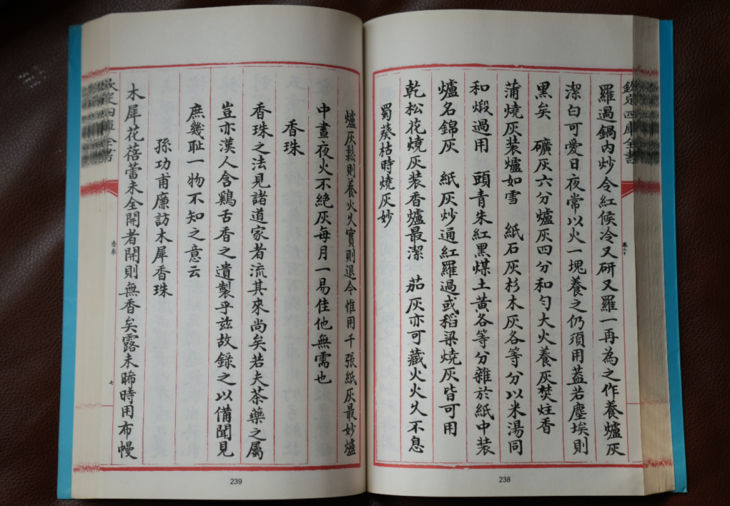 欽定四庫全書
羅過鍋内炒令紅候冷又研又羅一再為之作養爐灰
潔白可愛日夜常以火一塊養之仍須用蓋若塵埃則
黒矣　礦灰六分爐灰四分和匀大火養灰焚炷香
蒲燒灰装爐如雪　紙石灰杉木灰各等分以米湯同
和煅過用　頭青朱紅黒煤土黄各等分雜於紙中装
爐名錦灰　紙灰炒通紅羅過或稻梁燒灰皆可用
乾松花燒灰装香爐最潔　茄灰亦可藏火火久不息
蜀葵枯時燒灰妙
238
爐灰鬆則養火久實則退今惟用千張紙灰最妙爐
中晝夜火不絶灰每月一易佳他無需也
香珠
香珠之法見諸道家者流其來尚矣若夫茶藥之屬
豈亦漢人含鷄舌香之遺製乎兹故録之以備聞見
庶幾耻一物不知之意云
孫功甫廉訪木犀香珠
木犀花蓓蕾未全開者開則無香矣露未晞時用布幔
欽定四庫全書
239